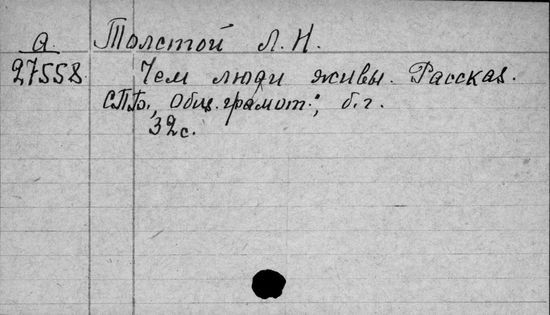 а Толстой Л. Н.
27558 Чем люди живы. Рассказ.
СПБ, Общ. грамот.; б. г.
32 с.